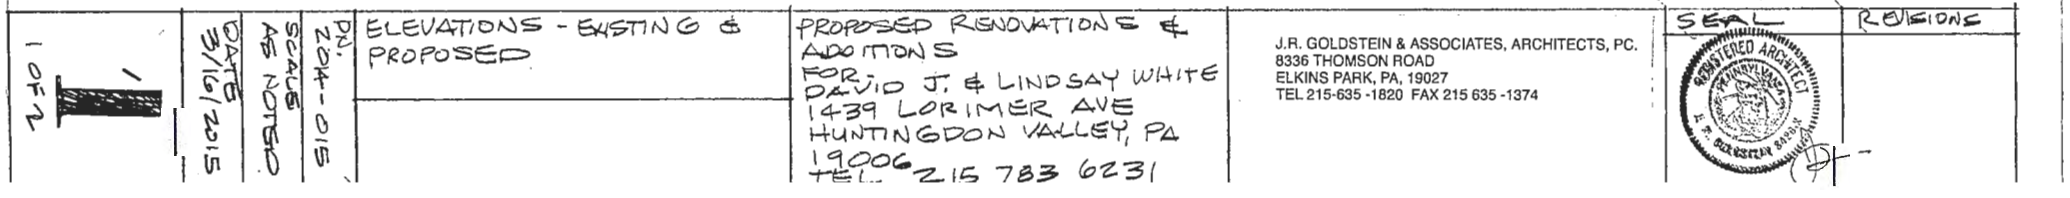 1 OF 2
1
DATE
3/16/2015
SCALE
AS NOTED
DN.
2014-015
ELEVATIONS - EXISTING &
PROPOSED
PROPOSED RENOVATIONS &
ADDITIONS
FOR-
DAVID J. & LINDSAY WHITE
1439 LORIMER AVE
HUNTINGDON VALLEY, PA
19006
TEL. 215 783 6231
J.R. GOLDSTEIN & ASSOCIATES, ARCHITECTS, PC.
8336 THOMSON ROAD
ELKINS PARK, PA, 19027
TEL 215-635 -1820 FAX 215 635 -1374
SEAL
REGISTERED ARCHITECT
PENNSYLVANIA
REVISIONS